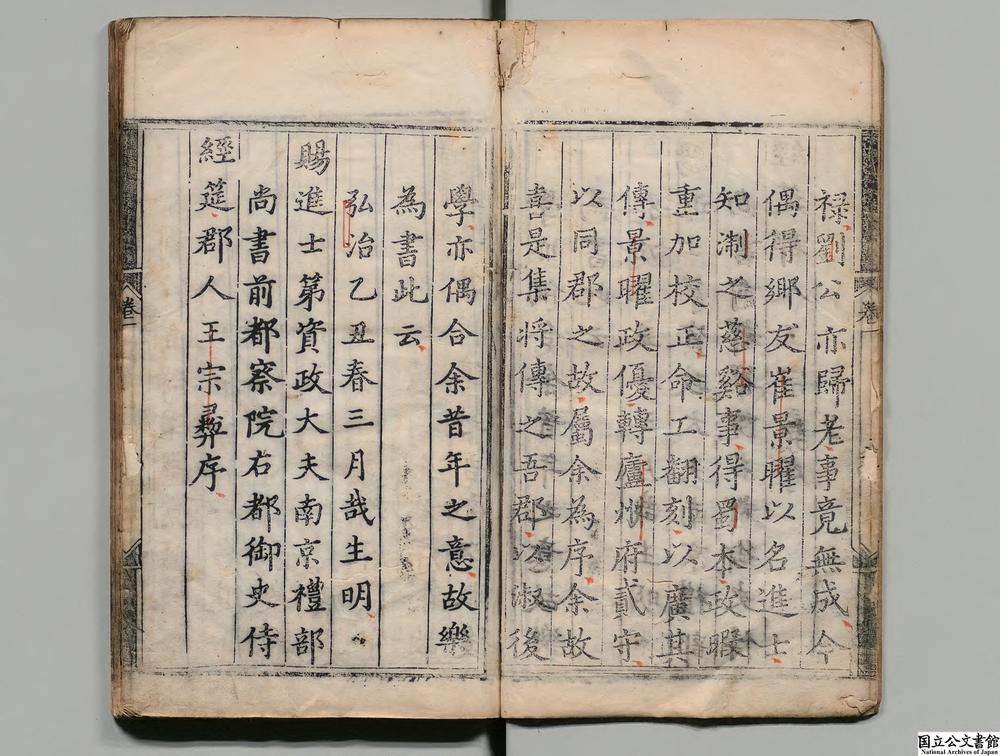 祿劉公亦歸老事竟無成今
偶得鄉友崔景曜以名進士
知淛之慈谿事得蜀本政暇
重加校正命工翻刻以廣其
傳景曜政優轉廬州府貳守
以同郡之故屬余為序余故
喜是集將傳之吾郡以淑後
卷一
學亦偶合余昔年之意故樂
為書此云
弘治乙丑春三月哉生明
賜進士第資政大夫南京禮部
尚書前都察院右都御史侍
經筵郡人王宗彞序
卷一
国立公文書館
National Archives of Japan